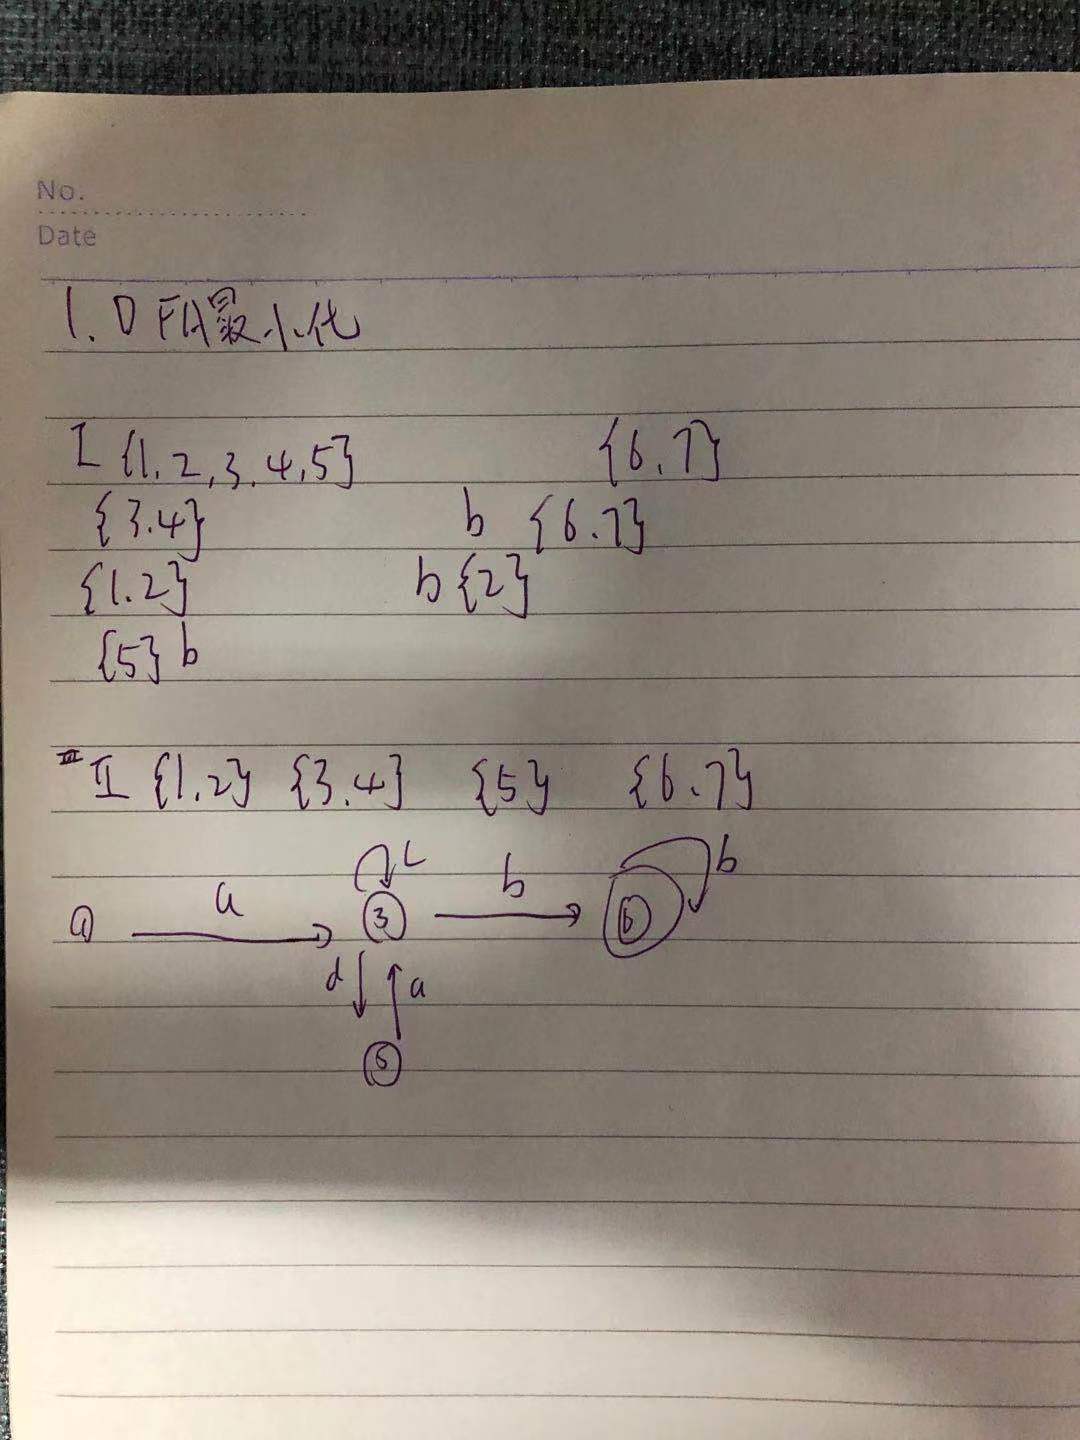 No.
Date
1. DFA最小化
I {1.2,3.4,5} {6.7}
{3.4} b {6.7}
{1.2} b {2}
{5} b
III II {1.2} {3.4} {5} {6.7}
a b b
3 6
d a
5